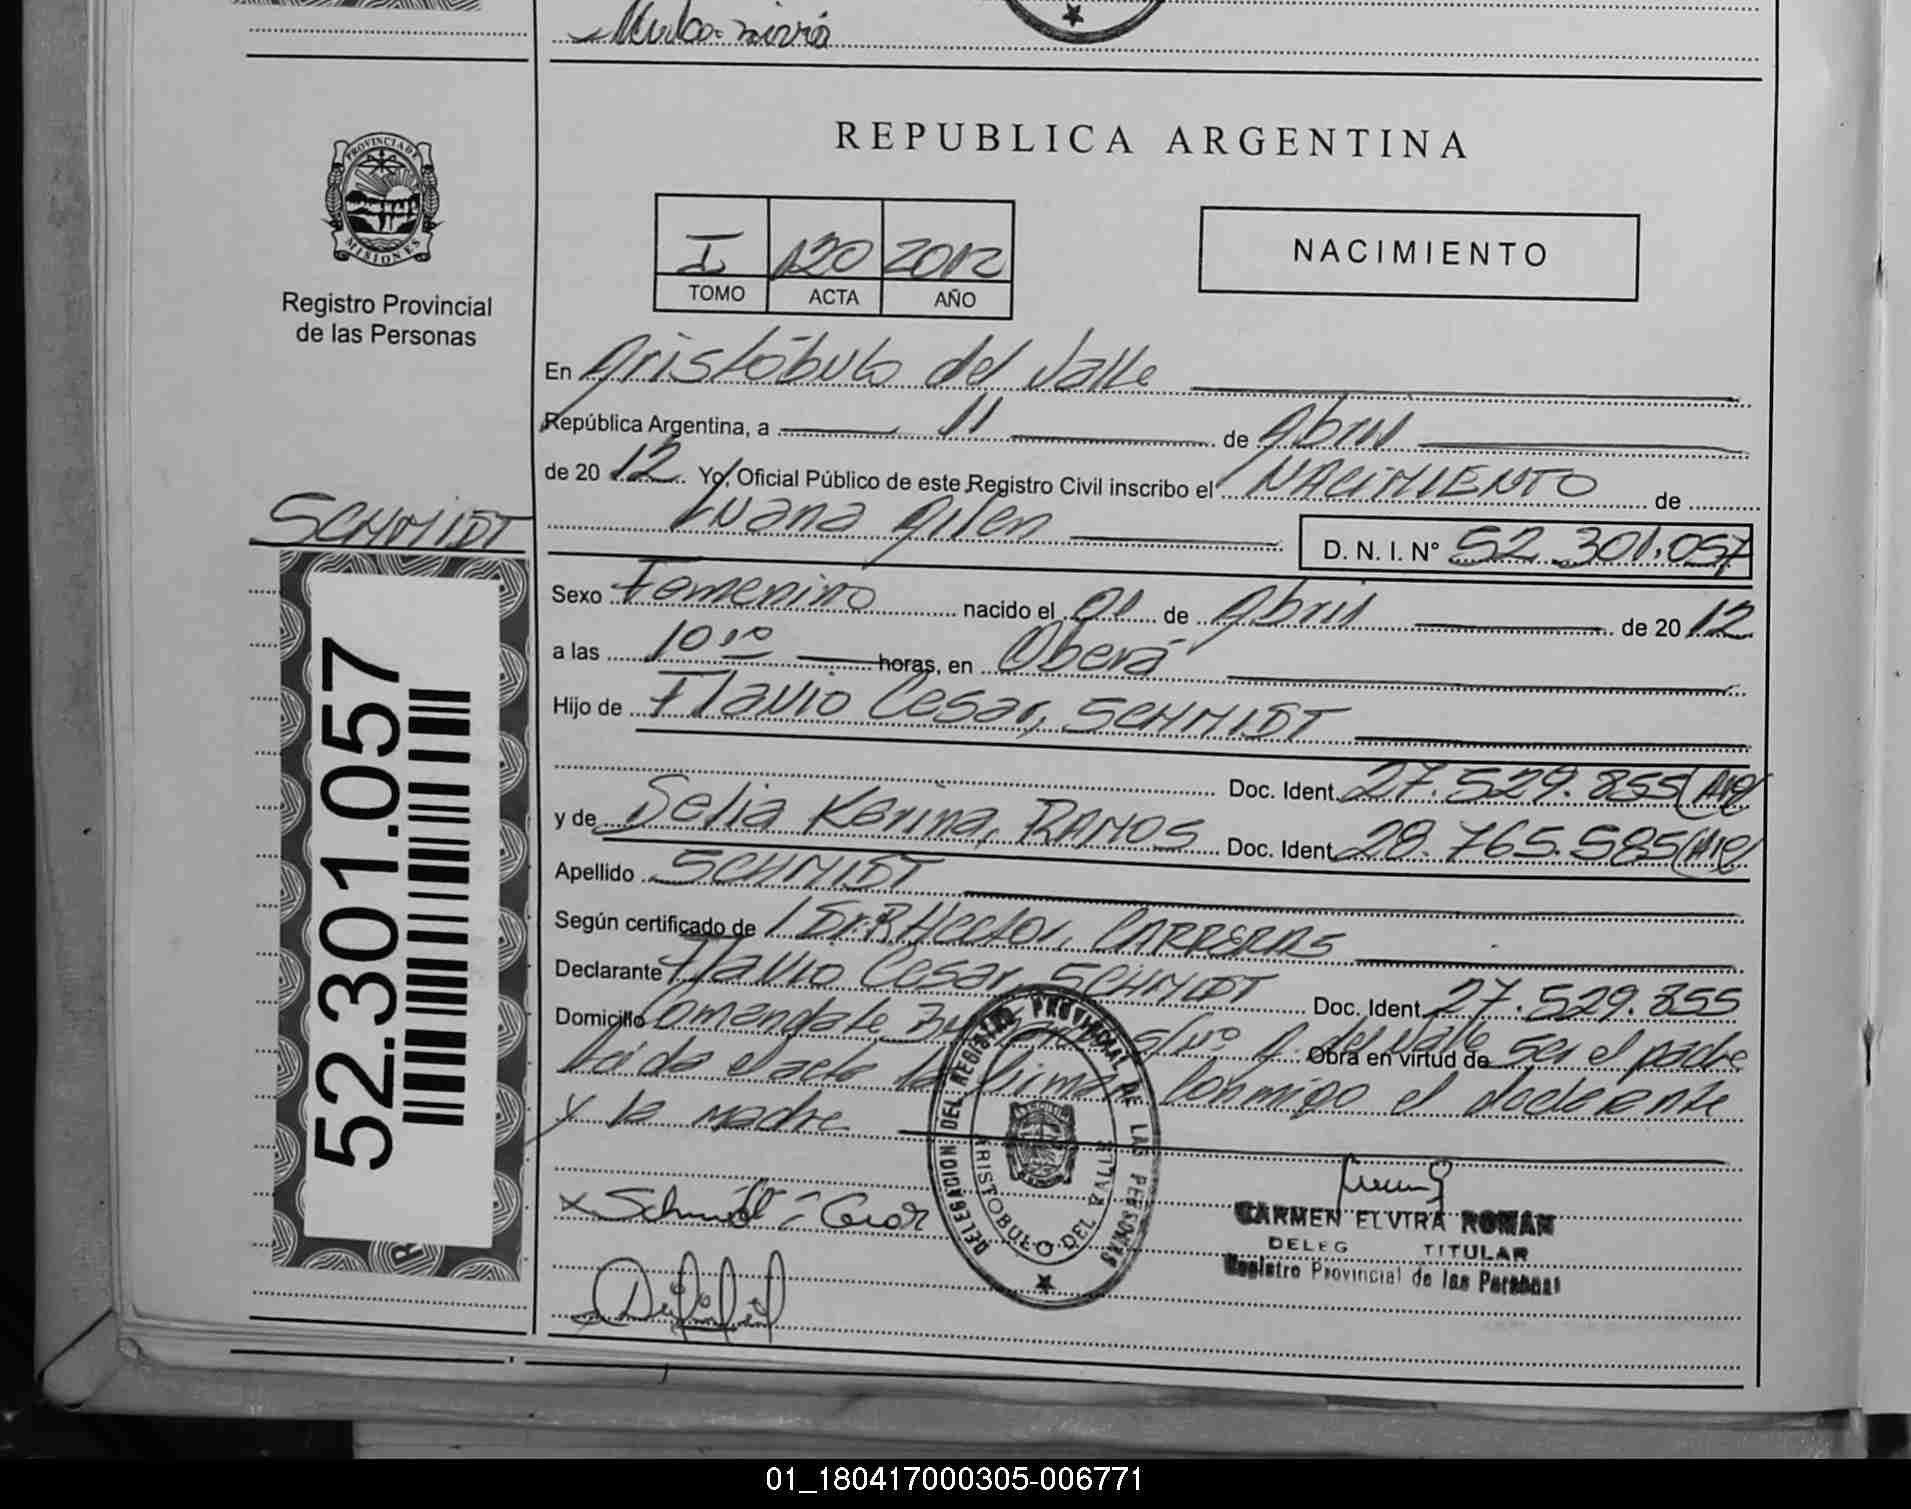 PROVINCIA DE
MISIONES
Registro Provincial
de las Personas
REPUBLICA ARGENTINA
I 120 2012
TOMO ACTA AÑO
NACIMIENTO
En Aristóbulo del Valle
República Argentina, a 11 de Abril
de 20 12 Yo, Oficial Público de este Registro Civil inscribo el NACIMIENTO de
SCHMIDT
Luana Ailen D. N. I. N° 52.301.057
Sexo Femenino nacido el 01 de Abril de 20 12
a las 10 horas, en Oberá
Hijo de Flavio Cesar, SCHMIDT
Doc. Ident. 27.529.855
y de Delia Karina, RAMOS Doc. Ident. 28.765.585
Apellido SCHMIDT
Según certificado de Hector, CARRERAS
Declarante Flavio Cesar, SCHMIDT Doc. Ident. 27.529.855
Domicilio Comandate S/Nº A. del Valle Obra en virtud de ser el padre
Leida el acta la firman conmigo el declarante
y la madre
52.301.057
DELEGACION DEL REGISTRO PROVINCIAL DE LAS PERSONAS
ARISTOBULO DEL VALLE
x Schmidt Cesar
CARMEN ELVIRA ROMAN
DELEG TITULAR
Registro Provincial de las Personas
01_180417000305-006771